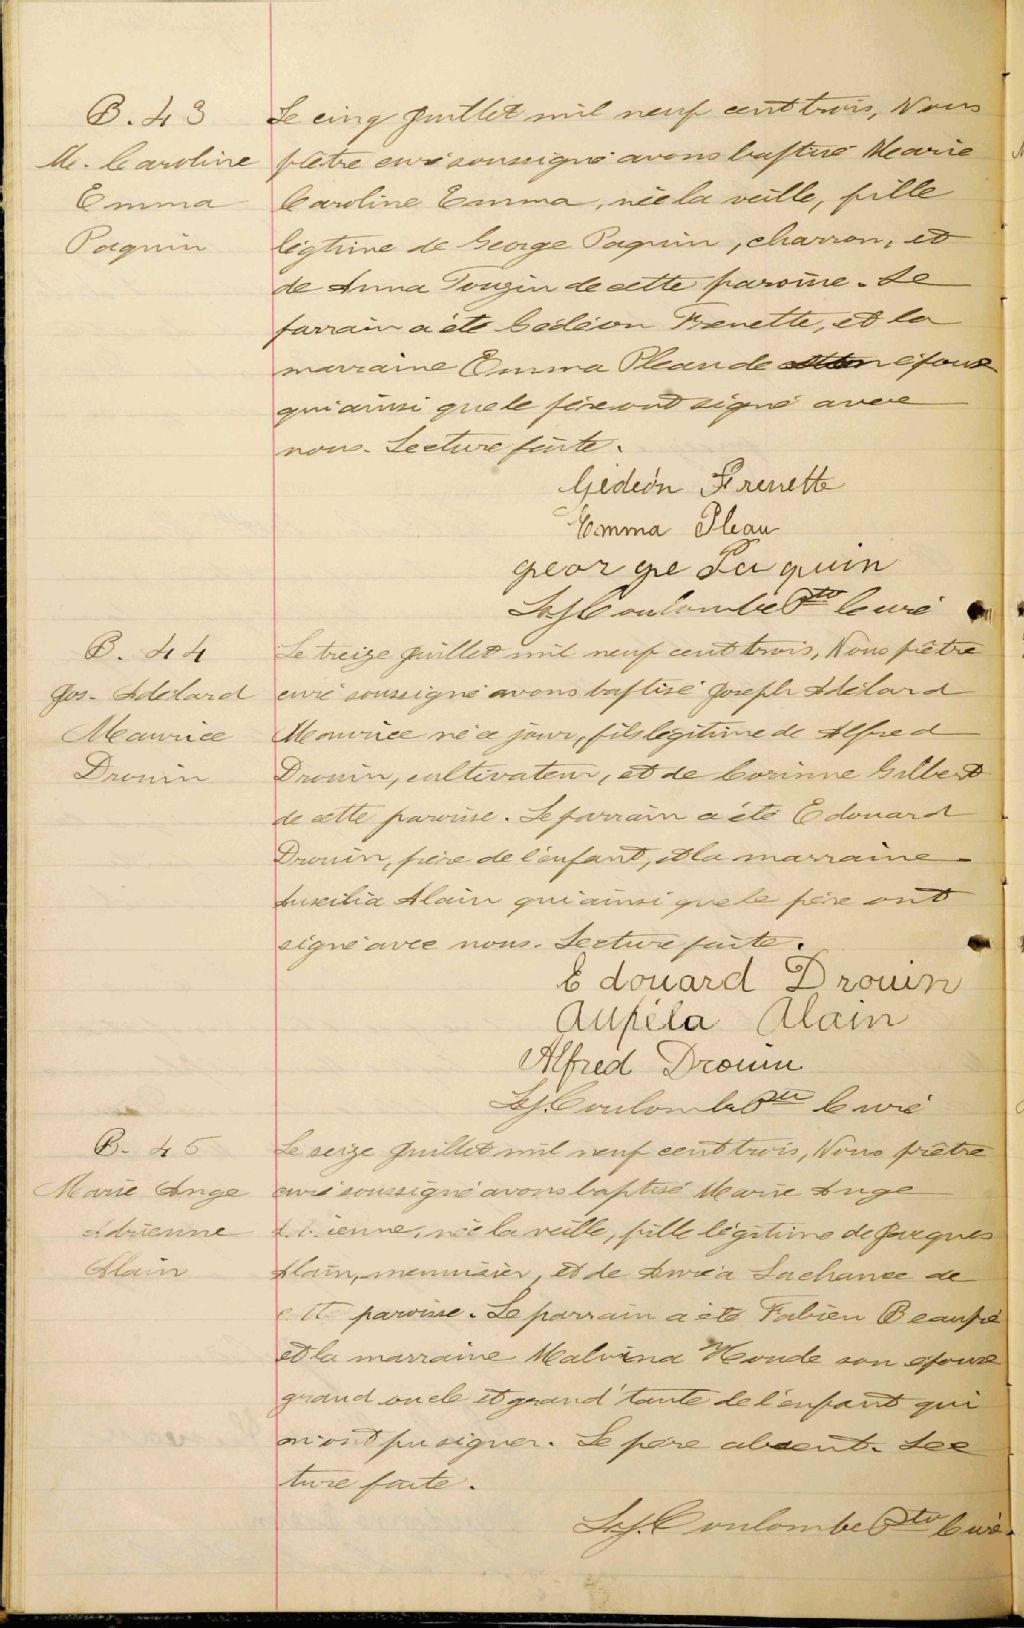 B. 43
M. Caroline
Emma
Paquin
Le cinq Juillet mil neuf cent trois, Nous
prêtre curé soussigné avons baptisé Marie
Caroline Emma, née la veille, fille
légtime de George Paquin, charron, et
de Anna Tougin de cette paroisse. Le
parrain a été Gédéon Frenette, et la
marraine Emma Pleau de épouse
qui ainsi que le père ont signé avec
nous. Lecture faite.
Gédéon Frenette
Emma Pleau
george Paquin
Ls J. Coulombe Ptre Curé
B. 44
Jos. Adélard
Maurice
Drouin
Le treize Juillet mil neuf cent trois, Nous prêtre
curé soussigné avons baptisé Joseph Adélard
Maurice né ce jour, fils légitime de Alfred
Drouin, cultivateur, et de Corinne Gilbert
de cette paroisse. Le parrain a été Edouard
Drouin, père de l'enfant, et la marraine
Auxilia Alain qui ainsi que le père ont
signé avec nous. Lecture faite.
Edouard Drouin
Auféla Alain
Alfred Drouin
Ls J. Coulombe Ptre Curé
B. 45
Marie Ange
Adrienne
Alain
Le seize Juillet mil neuf cent trois, Nous prêtre
curé soussigné avons baptisé Marie Ange
Adrienne, née la veille, fille légitime de Jacques
Alain, menuisier, et de Auréa Lachance de
cette paroisse. Le parrain a été Fabien Beaupré
et la marraine Malvina Houde son épouse
grand oncle et grand'tante de l'enfant qui
n'ont pu signer. Le père absent. Lec
ture faite.
Ls J. Coulombe Ptre Curé.